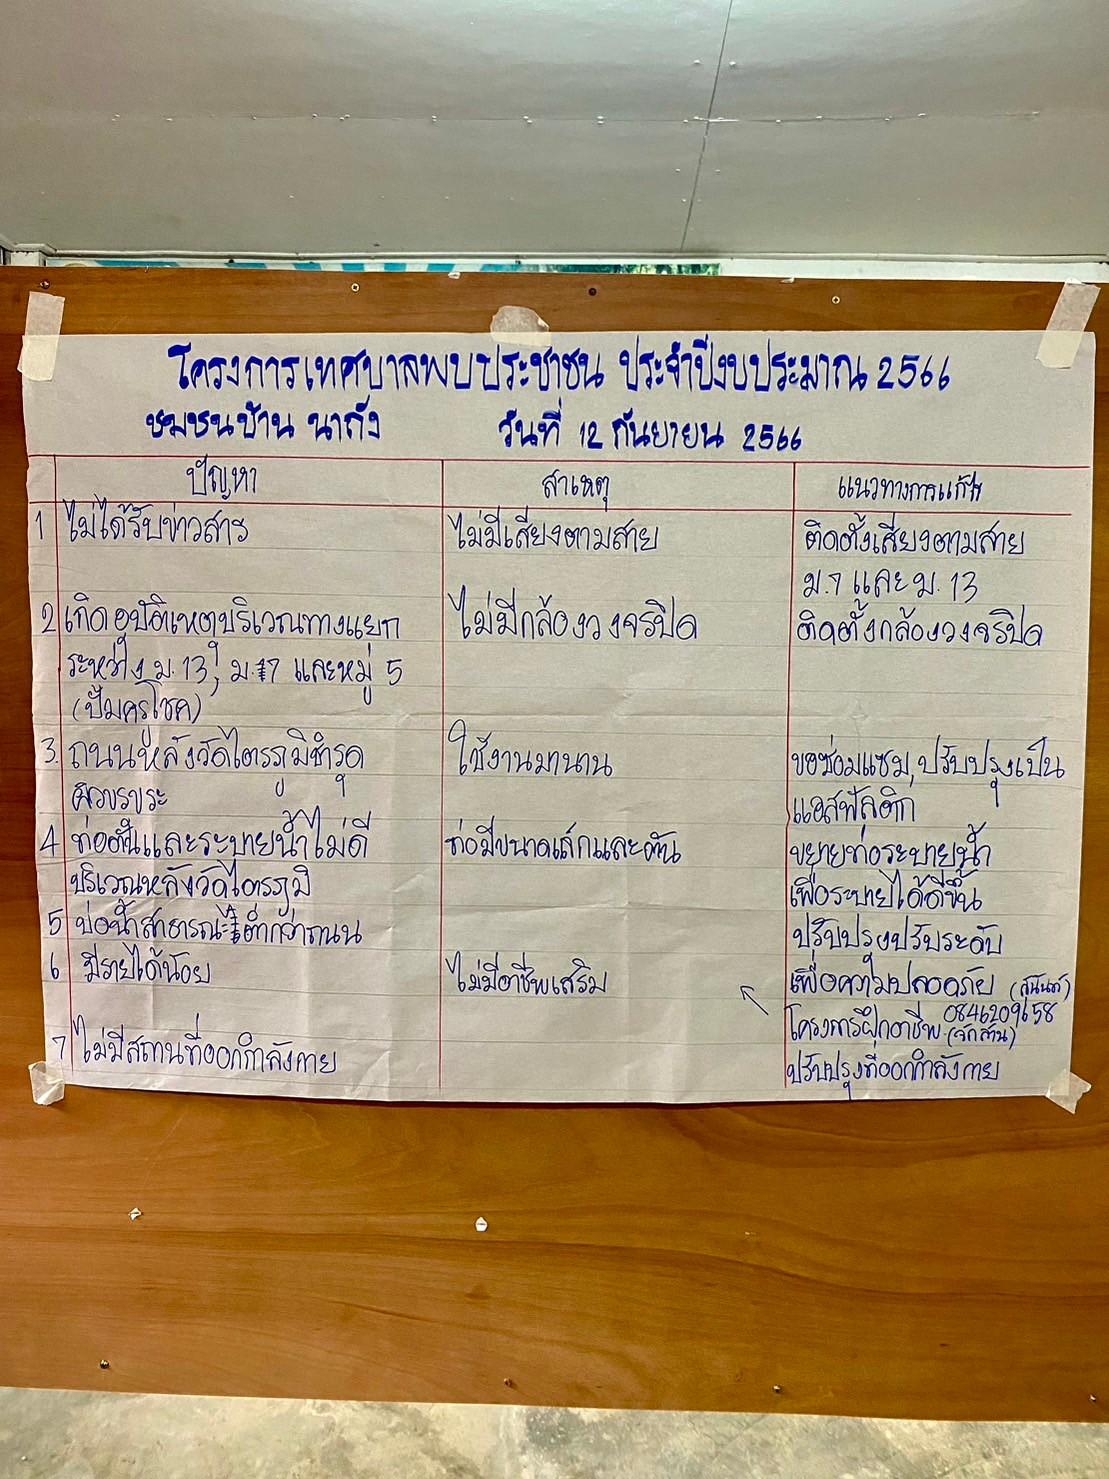 โครงการเทศบาลพบประชาชน ประจำปีงบประมาณ 2566
ชุมชนบ้าน นาถัง วันที่ 12 กันยายน 2566
ปัญหา สาเหตุ แนวทางการแก้ไข
1 ไม่ได้รับข่าวสาร ไม่มีเสียงตามสาย ติดตั้งเสียงตามสาย
ม.7 และ ม.13
2 เกิดอุบัติเหตุบริเวณทางแยก ไม่มีกล้องวงจรปิด ติดตั้งกล้องวงจรปิด
ระหว่าง ม.13, ม.7 และหมู่ 5
(ปั๊มครูโชค)
3. ถนนหลังวัดไตรภูมิชำรุด ใช้งานมานาน ขอซ่อมแซม, ปรับปรุงเป็น
ผิวขรุขระ แอสฟัลติก
4 ท่อตันและระบายน้ำไม่ดี ท่อมีขนาดเล็กและตัน ขยายท่อระบายน้ำ
บริเวณหลังวัดไตรภูมิ เพื่อระบายได้ดีขึ้น
5 บ่อน้ำสาธารณะต่ำกว่าถนน ปรับปรุงปรับระดับ
6 มีรายได้น้อย ไม่มีอาชีพเสริม เพื่อความปลอดภัย
0846209658
โครงการฝึกอาชีพ (จักสาน)
7 ไม่มีสถานที่ออกกำลังกาย ปรับปรุงที่ออกกำลังกาย